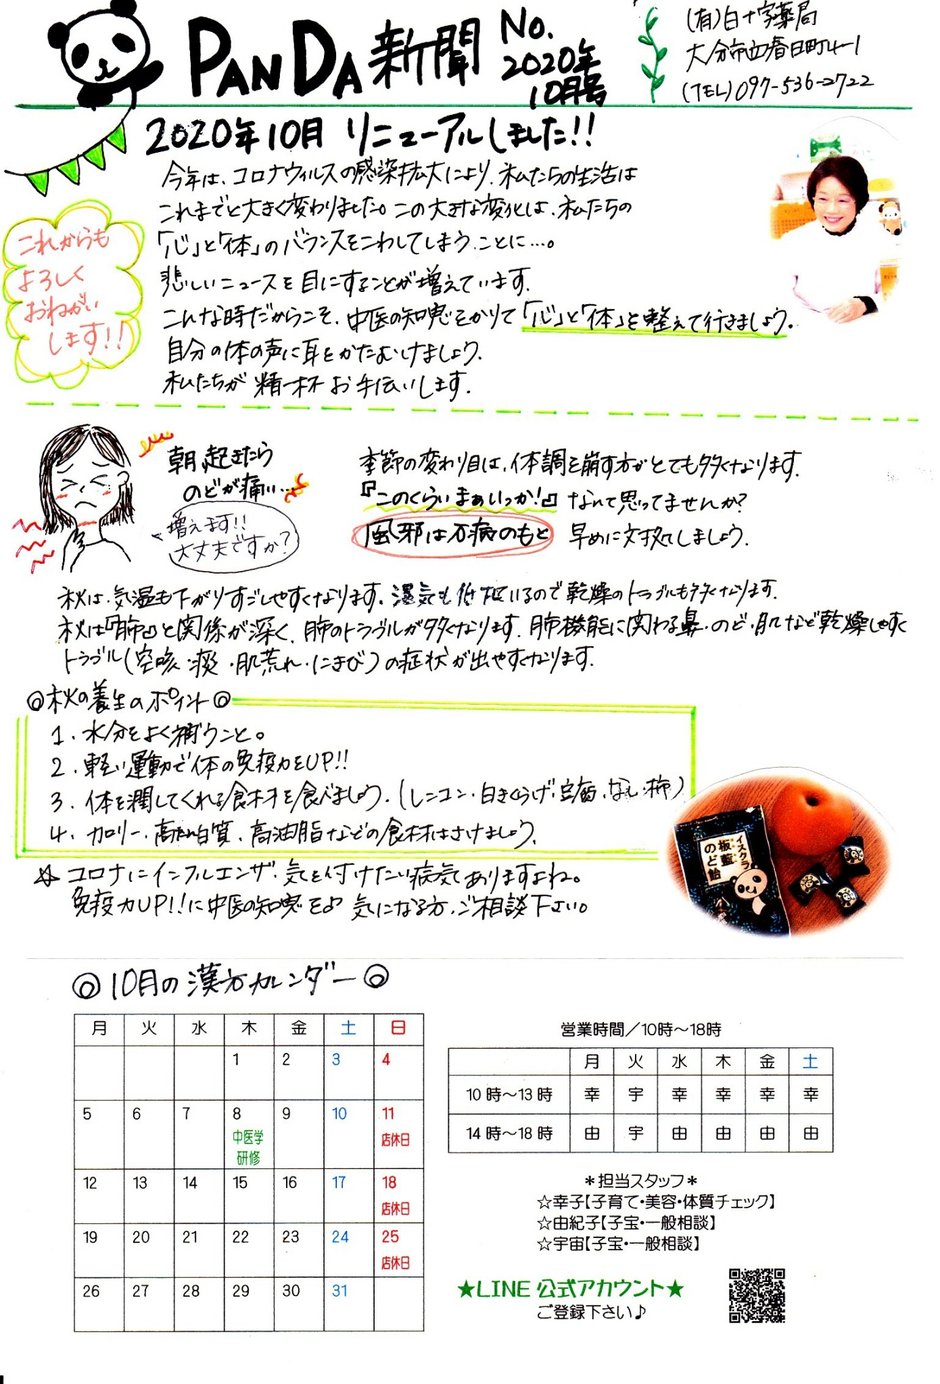 PANDA新聞 No. 2020年 10月号
(有)白十字薬局
大分市春日町4-1
(TEL)097-536-2722
2020年10月 リニューアルしました!!
今年は、コロナウィルスの感染拡大により、私たちの生活は
これまでと大きく変わりました。この大きな変化は、私たちの
「心」と「体」のバランスをこわしてしまうことに…。
悲しいニュースを目にすることが増えています。
こんな時だからこそ、中医の知恵をかりて「心」と「体」を整えて行きましょう。
自分の体の声に耳をかたむけましょう。
私たちが精一杯お手伝いします。
これからも
よろしく
おねがい
します!!
朝、起きたら
のどが痛い…
増えます!!
大丈夫ですか?
季節の変わり目は、体調を崩す方がとても多くなります。
『このくらいまぁいっか!』なんて思ってませんか?
風邪は万病のもと 早めに対処しましょう。
秋は、気温も下がりすごしやすくなります。湿気も低いので乾燥のトラブルも多くなります。
秋は『肺』と関係が深く、肺のトラブルが多くなります。肺機能に関わる鼻・のど・肌など乾燥しやすく
トラブル(空咳・痰・肌荒れ・にきび)の症状が出やすくなります。
◎秋の養生のポイント◎
1. 水分をよく補うこと。
2. 軽い運動で体の免疫力をUP!!
3. 体を潤してくれる食材を食べましょう。(レンコン・白きくらげ・豆・なし・柿)
4. カロリー・高たん白質、高油脂などの食材はさけましょう。
☆コロナにインフルエンザ・気を付けたい病気ありますよね。
免疫力UP!!に中医の知恵を♪ 気になる方、ご相談下さい。
イスクラ
板藍
のど飴
◎10月の漢方カレンダー◎
月 火 水 木 金 土 日
1 2 3 4
5 6 7 8 9 10 11
中医学
研修
店休日
12 13 14 15 16 17 18
店休日
19 20 21 22 23 24 25
店休日
26 27 28 29 30 31
営業時間/10時~18時
月 火 水 木 金 土
10時~13時 幸 宇 幸 幸 幸 幸
14時~18時 由 宇 由 由 由 由
*担当スタッフ*
☆幸子【子育て・美容・体質チェック】
☆由紀子【子宝・一般相談】
☆宇宙【子宝・一般相談】
★LINE 公式アカウント★
ご登録下さい♪